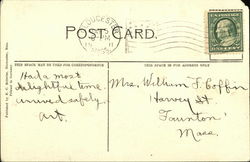 GLOUCESTER
POST CARD.
THIS SPACE MAY BE USED FOR CORRESPONDENCE
THIS SPACE IS FOR ADDRESS ONLY
Had a most
delightful time.
arrived safely.
Art.
Mrs. William T. Coffin
Harvey St.
Taunton
Mass.